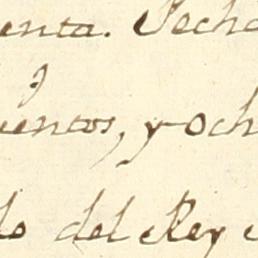 enta. Fecho
ientos, y och
do del Rey